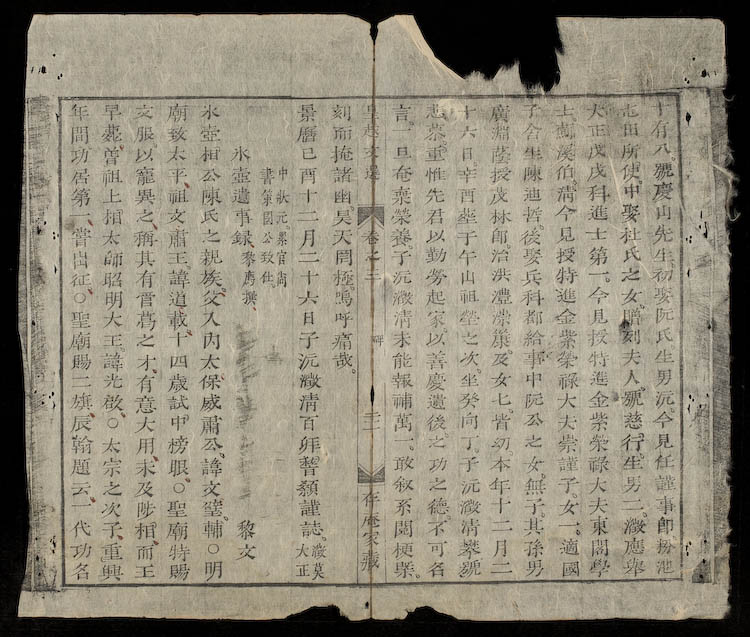 十有八號慶山先生初娶阮氏生男沅今見任謹事郎粉池
屯田所使中娶杜氏之女贈列夫人號慈行生男二瀓應舉
大正戊戌科進士第一今見授特進金紫榮祿大夫東閣學
士溪伯清今見授特進金紫榮祿大夫崇謹子女一適國
子舍生陳迪哲後娶兵科都給事中阮公之女無子其孫男
廣淵蔭授茂林郎治洪澧及女七皆幼本年十二月二
十六日辛酉葬于午山祖塋之次坐癸向丁子沅瀓清攀號
悲慕重惟先君以勤勞起家以善慶遺後之功之德不可名
言一旦奄棄榮養子沅瀓清未能報補萬一敢叙系閥梗槩
皇越文選 卷之三 碑 二 存庵家藏
刻而掩諸幽昊天罔極嗚呼痛哉
景曆己酉十二月二十六日子沅瀓清百拜誓顙謹誌 瀓莫大正
中狀元累官尚書策國公致仕
氷壺遺事錄 黎撰 黎文
氷壺相公陳氏之親族父入內太保威肅公諱文璧輔○明
廟致太平祖文肅王諱道載十四歲試中榜眼○聖廟特賜
文服以寵異之稱其有之才有意大用未及陟相而王
早薨曾祖上相太師昭明大王諱光啟○太宗之次子重興
年間功居第一嘗出征○聖廟賜二旗宸翰題云一代功名